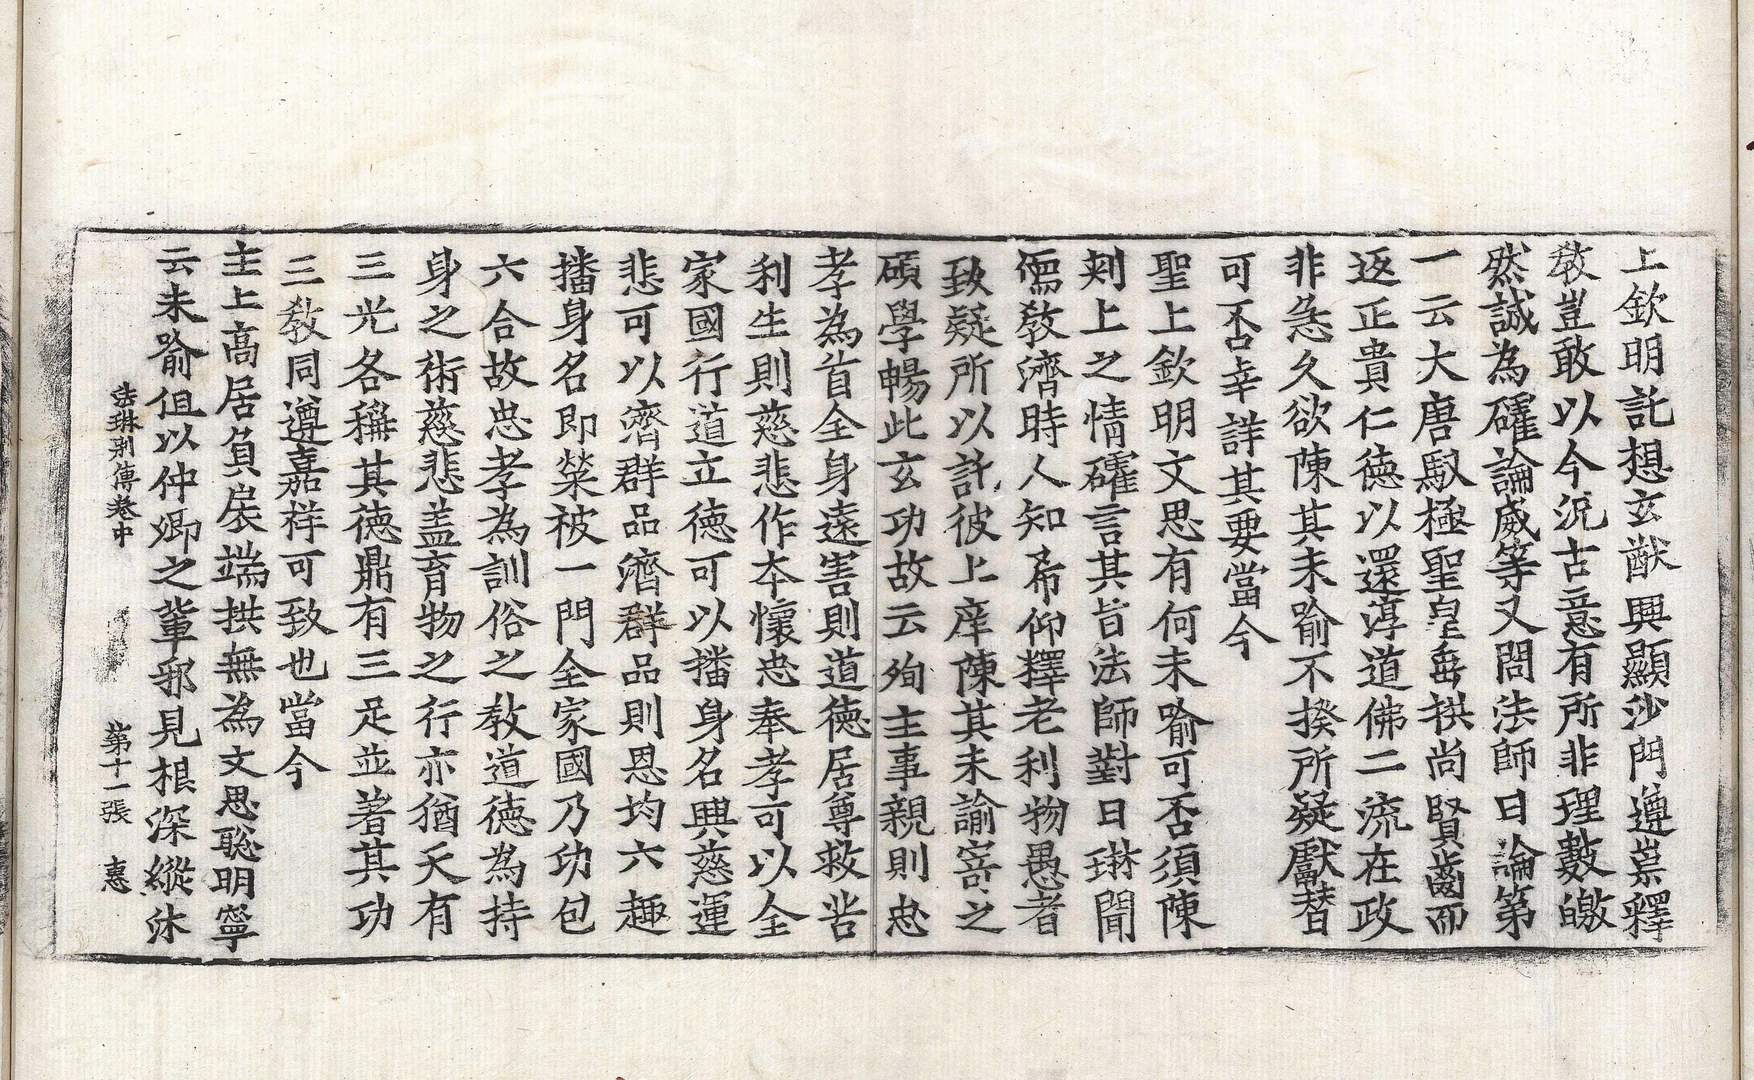 上欽明託想玄猷興顯沙門遵崇釋
教豈敢以今況古意有所非理數皦
然誠為確論威等又問法師曰論第
一云大唐馭極聖皇垂拱尚賢齒而
返正貴仁德以還淳道佛二流在政
非急久欲陳其未喻不揆所疑獻替
可不幸詳其要當今
聖上欽明文思有何未喻可否須陳
剋上之情確言其旨法師對曰琳聞
儒教濟時人知希仰釋老利物愚者
致疑所以託彼上庠陳其未諭寄之
碩學暢此玄功故云殉主事親則忠
孝為首全身遠害則道德居尊救苦
利生則慈悲作本懷忠奉孝可以全
家國行道立德可以播身名興慈運
悲可以濟群品濟群品則恩均六趣
播身名即榮被一門全家國乃功包
六合故忠孝為訓俗之教道德為持
身之術慈悲盖育物之行亦猶天有
三光各稱其德鼎有三足並著其功
三教同遵嘉祥可致也當今
主上高居負扆端拱無為文思聡明寧
云未喻但以仲卿之輩邪見根深縱沐
法琳別傳卷中 第十一張 惠